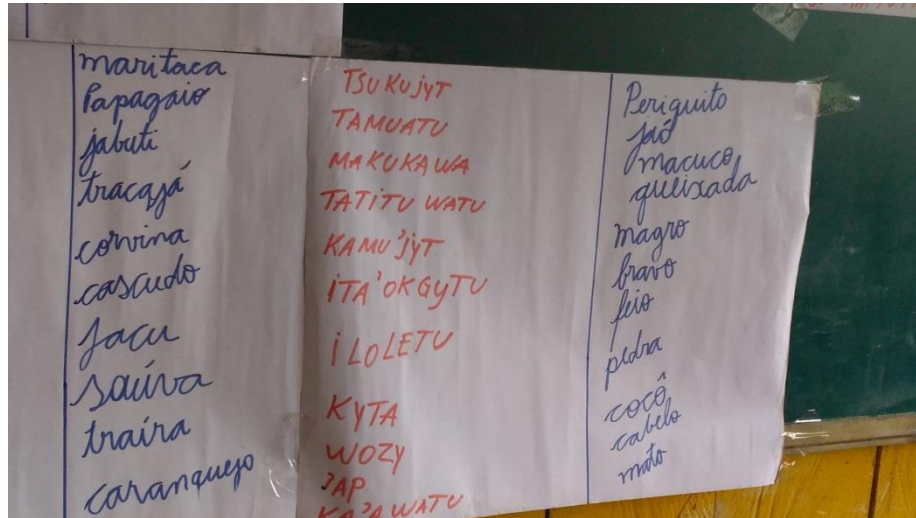 maritaca
Papagaio
jabuti
tracajá
corvina
cascudo
Jacu
Saúva
traíra
caranquejo
TSUKUJYT
TAMUATU
MAKUKAWA
TATITU WATU
KAMU'JYT
ITA'OKGYTU
ILOLETU
KYTA
WOZY
'AP
KA'A WATU
Periquito
jaó
macuco
queixada
magro
bravo
feio
pedra
cocô
cabelo
mato